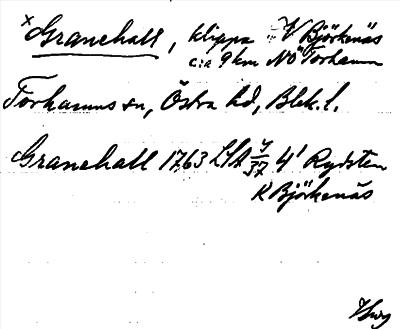 × Granehall, klippa V Björkenäs
c:a 9 km NÖ Torhamn
Torhamns sn, Östra hd, Blek. l.
Granehall 1763 LSA 4' Rydsten
K Björkenäs